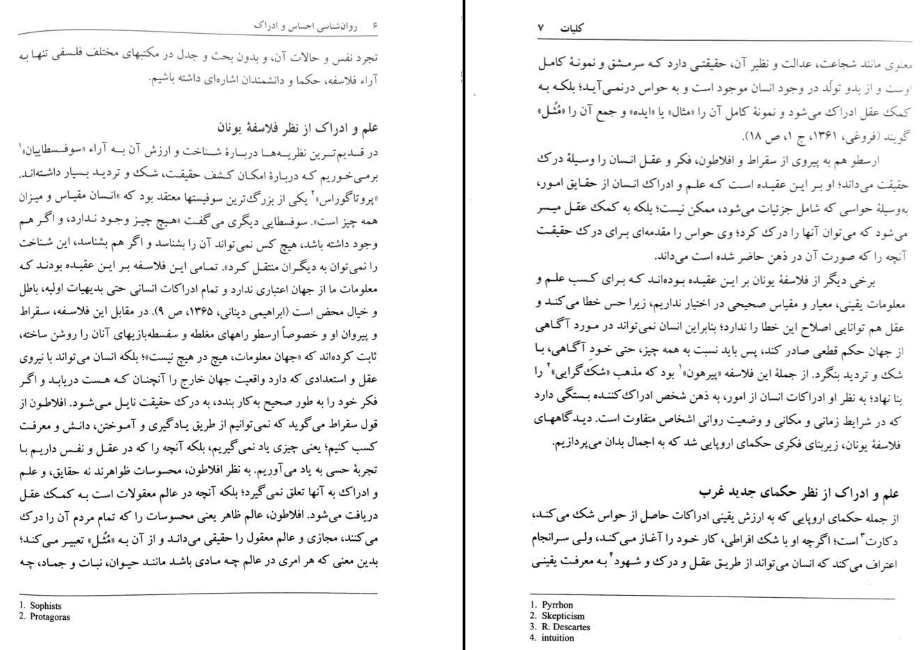 ۶   روان‌شناسی احساس و ادراک
تجرد نفس و حالات آن، و بدون بحث و جدل در مکتبهای مختلف فلسفی تنها به
آراء فلاسفه، حکما و دانشمندان اشاره‌ای داشته باشیم.
علم و ادراک از نظر فلاسفهٔ یونان
در قدیم‌ترین نظریه‌ها دربارهٔ شناخت و ارزش آن به آراء «سوفسطاییان»۱
برمی‌خوریم که دربارهٔ امکان کشف حقیقت، شک و تردید بسیار داشته‌اند.
«پروتاگوراس»۲ یکی از بزرگ‌ترین سوفیستها معتقد بود که «انسان مقیاس و میزان
همه چیز است». سوفسطایی دیگری می‌گفت «هیچ چیز وجود ندارد، و اگر هم
وجود داشته باشد، هیچ کس نمی‌تواند آن را بشناسد و اگر هم بشناسد، این شناخت
را نمی‌توان به دیگران منتقل کرد». تمامی این فلاسفه بر این عقیده بودند که
معلومات ما از جهان اعتباری ندارد و تمام ادراکات انسانی حتی بدیهیات اولیه، باطل
و خیال محض است (ابراهیمی دینانی، ۱۳۶۵، ص ۹). در مقابل این فلاسفه، سقراط
و پیروان او و خصوصاً ارسطو راههای مغلطه و سفسطه‌بازیهای آنان را روشن ساخته،
ثابت کرده‌اند که «جهان معلومات، هیچ در هیچ نیست»؛ بلکه انسان می‌تواند با نیروی
عقل و استعدادی که دارد واقعیت جهان خارج را آنچنان که هست دریابد و اگر
فکر خود را به طور صحیح به‌کار بندد، به درک حقیقت نایل می‌شود. افلاطون از
قول سقراط می‌گوید که نمی‌توانیم از طریق یادگیری و آموختن، دانش و معرفت
کسب کنیم؛ یعنی چیزی یاد نمی‌گیریم، بلکه آنچه را که در عقل و نفس داریم با
تجربهٔ حسی به یاد می‌آوریم. به نظر افلاطون، محسوسات ظواهرند نه حقایق، و علم
و ادراک به آنها تعلق نمی‌گیرد؛ بلکه آنچه در عالم معقولات است به کمک عقل
دریافت می‌شود. افلاطون، عالم ظاهر یعنی محسوسات را که تمام مردم آن را درک
می‌کنند، مجازی و عالم معقول را حقیقی می‌داند و از آن به «مُثُل» تعبیر می‌کند؛
بدین معنی که هر امری در عالم چه مادی باشد مانند حیوان، نبات و جماد، چه
1. Sophists
2. Protagoras
کلیات   ۷
معنوی مانند شجاعت، عدالت و نظیر آن، حقیقتی دارد که سرمشق و نمونهٔ کامل
اوست و از بدو تولّد در وجود انسان موجود است و به حواس درنمی‌آید؛ بلکه به
کمک عقل ادراک می‌شود و نمونهٔ کامل آن را «مثال» یا «ایده» و جمع آن را «مُثُل»
گویند (فروغی، ۱۳۶۱، ج ۱، ص ۱۸).
ارسطو هم به پیروی از سقراط و افلاطون، فکر و عقل انسان را وسیلهٔ درک
حقیقت می‌داند؛ او بر این عقیده است که علم و ادراک انسان از حقایق امور،
به‌وسیلهٔ حواسی که شامل جزئیات می‌شود، ممکن نیست؛ بلکه به کمک عقل میسر
می‌شود که می‌توان آنها را درک کرد؛ وی حواس را مقدمه‌ای برای درک حقیقت
آنچه را که صورت آن در ذهن حاضر شده است می‌داند.
برخی دیگر از فلاسفهٔ یونان بر این عقیده بوده‌اند که برای کسب علم و
معلومات یقینی، معیار و مقیاس صحیحی در اختیار نداریم، زیرا حس خطا می‌کند و
عقل هم توانایی اصلاح این خطا را ندارد؛ بنابراین انسان نمی‌تواند در مورد آگاهی
از جهان حکم قطعی صادر کند، پس باید نسبت به همه چیز، حتی خودِ آگاهی، با
شک و تردید بنگرد. از جملهٔ این فلاسفه «پیرهون»۱ بود که مذهب «شک‌گرایی»۲ را
بنا نهاد؛ به نظر او ادراکات انسان از امور، به ذهن شخص ادراک‌کننده بستگی دارد
که در شرایط زمانی و مکانی و وضعیت روانی اشخاص متفاوت است. دیدگاههای
فلاسفهٔ یونان، زیربنای فکری حکمای اروپایی شد که به اجمال بدان می‌پردازیم.
علم و ادراک از نظر حکمای جدید غرب
از جمله حکمای اروپایی که به ارزش یقینی ادراکات حاصل از حواس شک می‌کند،
دکارت۳ است؛ اگرچه او با شک افراطی، کار خود را آغاز می‌کند، ولی سرانجام
اعتراف می‌کند که انسان می‌تواند از طریق عقل و درک و شهود۴ به معرفت یقینی
1. Pyrrhon
2. Skepticism
3. R. Descartes
4. intuition